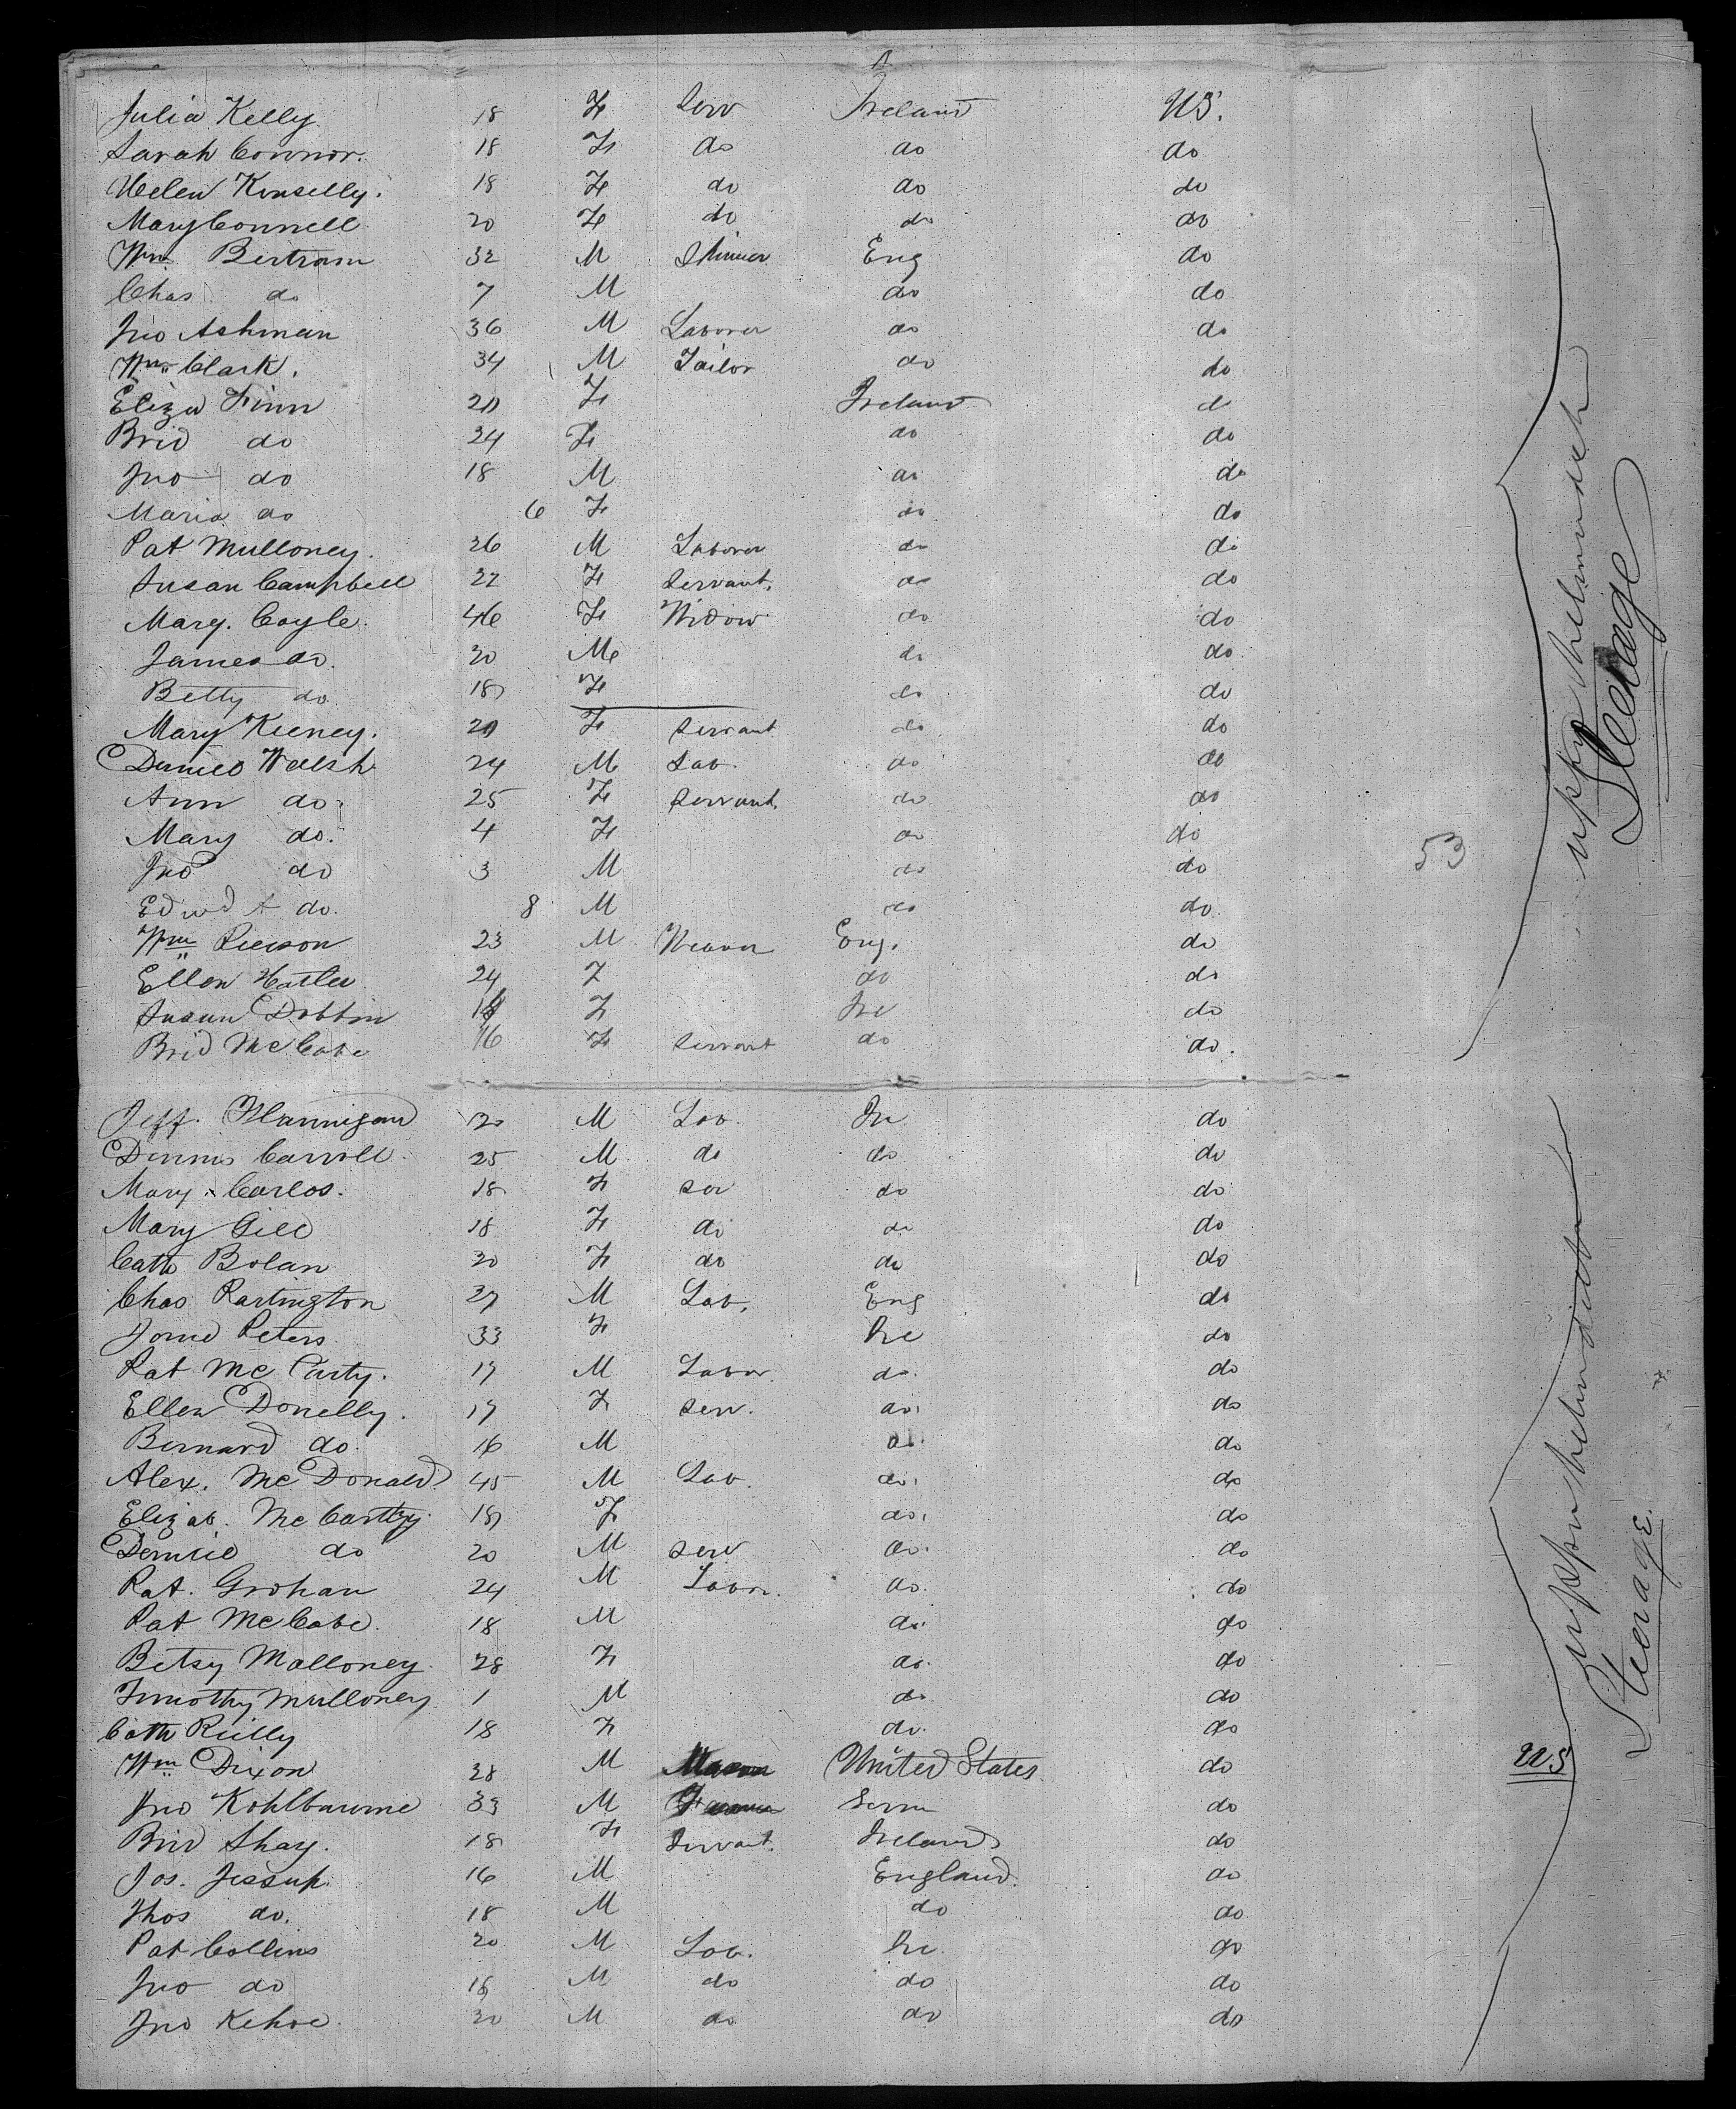 Julia Kelly 18 F Serv Ireland US.
Sarah Connor. 18 F do do do
Helen Kinselly. 18 F do do do
Mary Connell 20 F do do do
Wm Bertram 32 M Eng do
Chas do 7 M do do
Jno Ashman 36 M Laborer do do
Wm Clark. 34 M Tailor do do
Eliza Finn 20 F Ireland do
Brid do 24 F do do
Jno do 18 M do do
Maria do 6 F do do
Pat Mulloney. 26 M Laborer do do
Susan Campbell 22 F Servant. do do
Mary. Coyle. 46 F Widow do do
James do. 20 M do do
Betty do 18 F do do
Mary Keeney. 20 F Servant do do
Daniel Walsh 24 M Lab. do do
Ann do. 25 F Servant. do do
Mary do. 4 F do do
Jno do 3 M do do
53
Edwd A do. 8 M do do.
Wm Pierson 23 M Weaver Eng. do
Ellen 24 F do do
Susan Dobbin F Ire do
Brid McCabe 16 F Servant do do.
upper between deck
Steerage
Jeff. Flannigan 20 M Lab. Ire do
Dennis Carroll 25 M do do do
Mary. Carlos. 18 F Ser do do
Mary Gill 18 F do do do
Cath Bolan 20 F do do do
Chas Partington 27 M Lab. Eng do
Peters 33 F Ire do
Pat McCarty. 19 M Labor. do. do
Ellen Donelly. 19 F Serv. do. do
Bernard do. 16 M do. do
Alex. McDonald 45 M Lab. do. do
Elizab. McCarthy 18 F do. do
Daniel do 20 M Serv do. do
Pat. Grohan 24 M Labr. do. do
Pat McCabe. 18 M do. do
Betsy Molloney. 28 F do. do
Timothy Mulloney 1 M do. do
Cath Reilly 18 F do. do
Wm Dixon 28 M Mason United States. do US
Jno Kohlbaume 33 M Farmer Germ do
Brid Shay. 18 F Servant. Ireland do
Jos. Jessup. 16 M England. do
Thos do. 18 M do do
Pat Collins 20 M Lab. Ire. do
Jno do 18 M do do do
Jno Kehoe. 30 M do do do
upper between deck
Steerage.